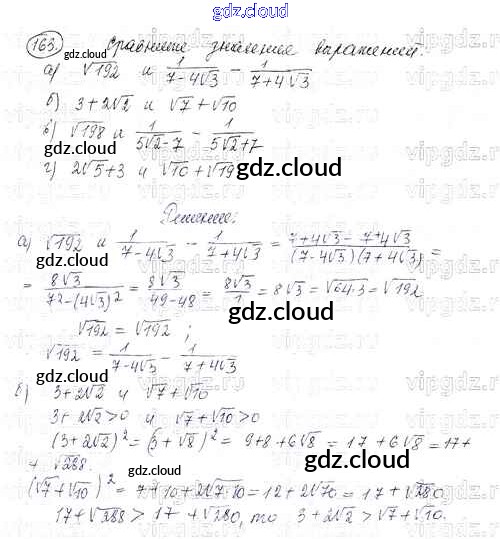 gdz.cloud
163. Сравните значение выражений:
gdz.cloud
а) √192 и 1/(7-4√3) - 1/(7+4√3)
б) 3+2√2 и √7+√10
в) √198 и 1/(5√2-7) - 1/(5√2+7)
г) 2√5+3 и √10+√19
gdz.cloud
Решение:
а) √192 и 1/(7-4√3) - 1/(7+4√3) = (7+4√3-7+4√3)/((7-4√3)(7+4√3)) =
gdz.cloud
= 8√3/(7²-(4√3)²) = 8√3/(49-48) = 8√3/1 = 8√3 = √(64·3) = √192
gdz.cloud
√192 = √192 ;
√192 = 1/(7-4√3) - 1/(7+4√3)
gdz.cloud
б) 3+2√2 и √7+√10
3+2√2>0 и √7+√10>0
(3+2√2)² = (3+√8)² = 9+8+6√8 = 17+6√8 = 17+
gdz.cloud
+√288.
(√7+√10)² = 7+10+2√7·10 = 12+2√70 = 17+√280
17+√288 > 17+√280, то 3+2√2 > √7+√10.
gdz.cloud